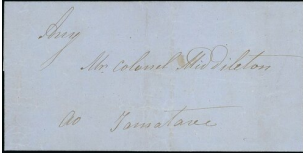 Any
Mr. Colonel Middleton
ao Tamatave